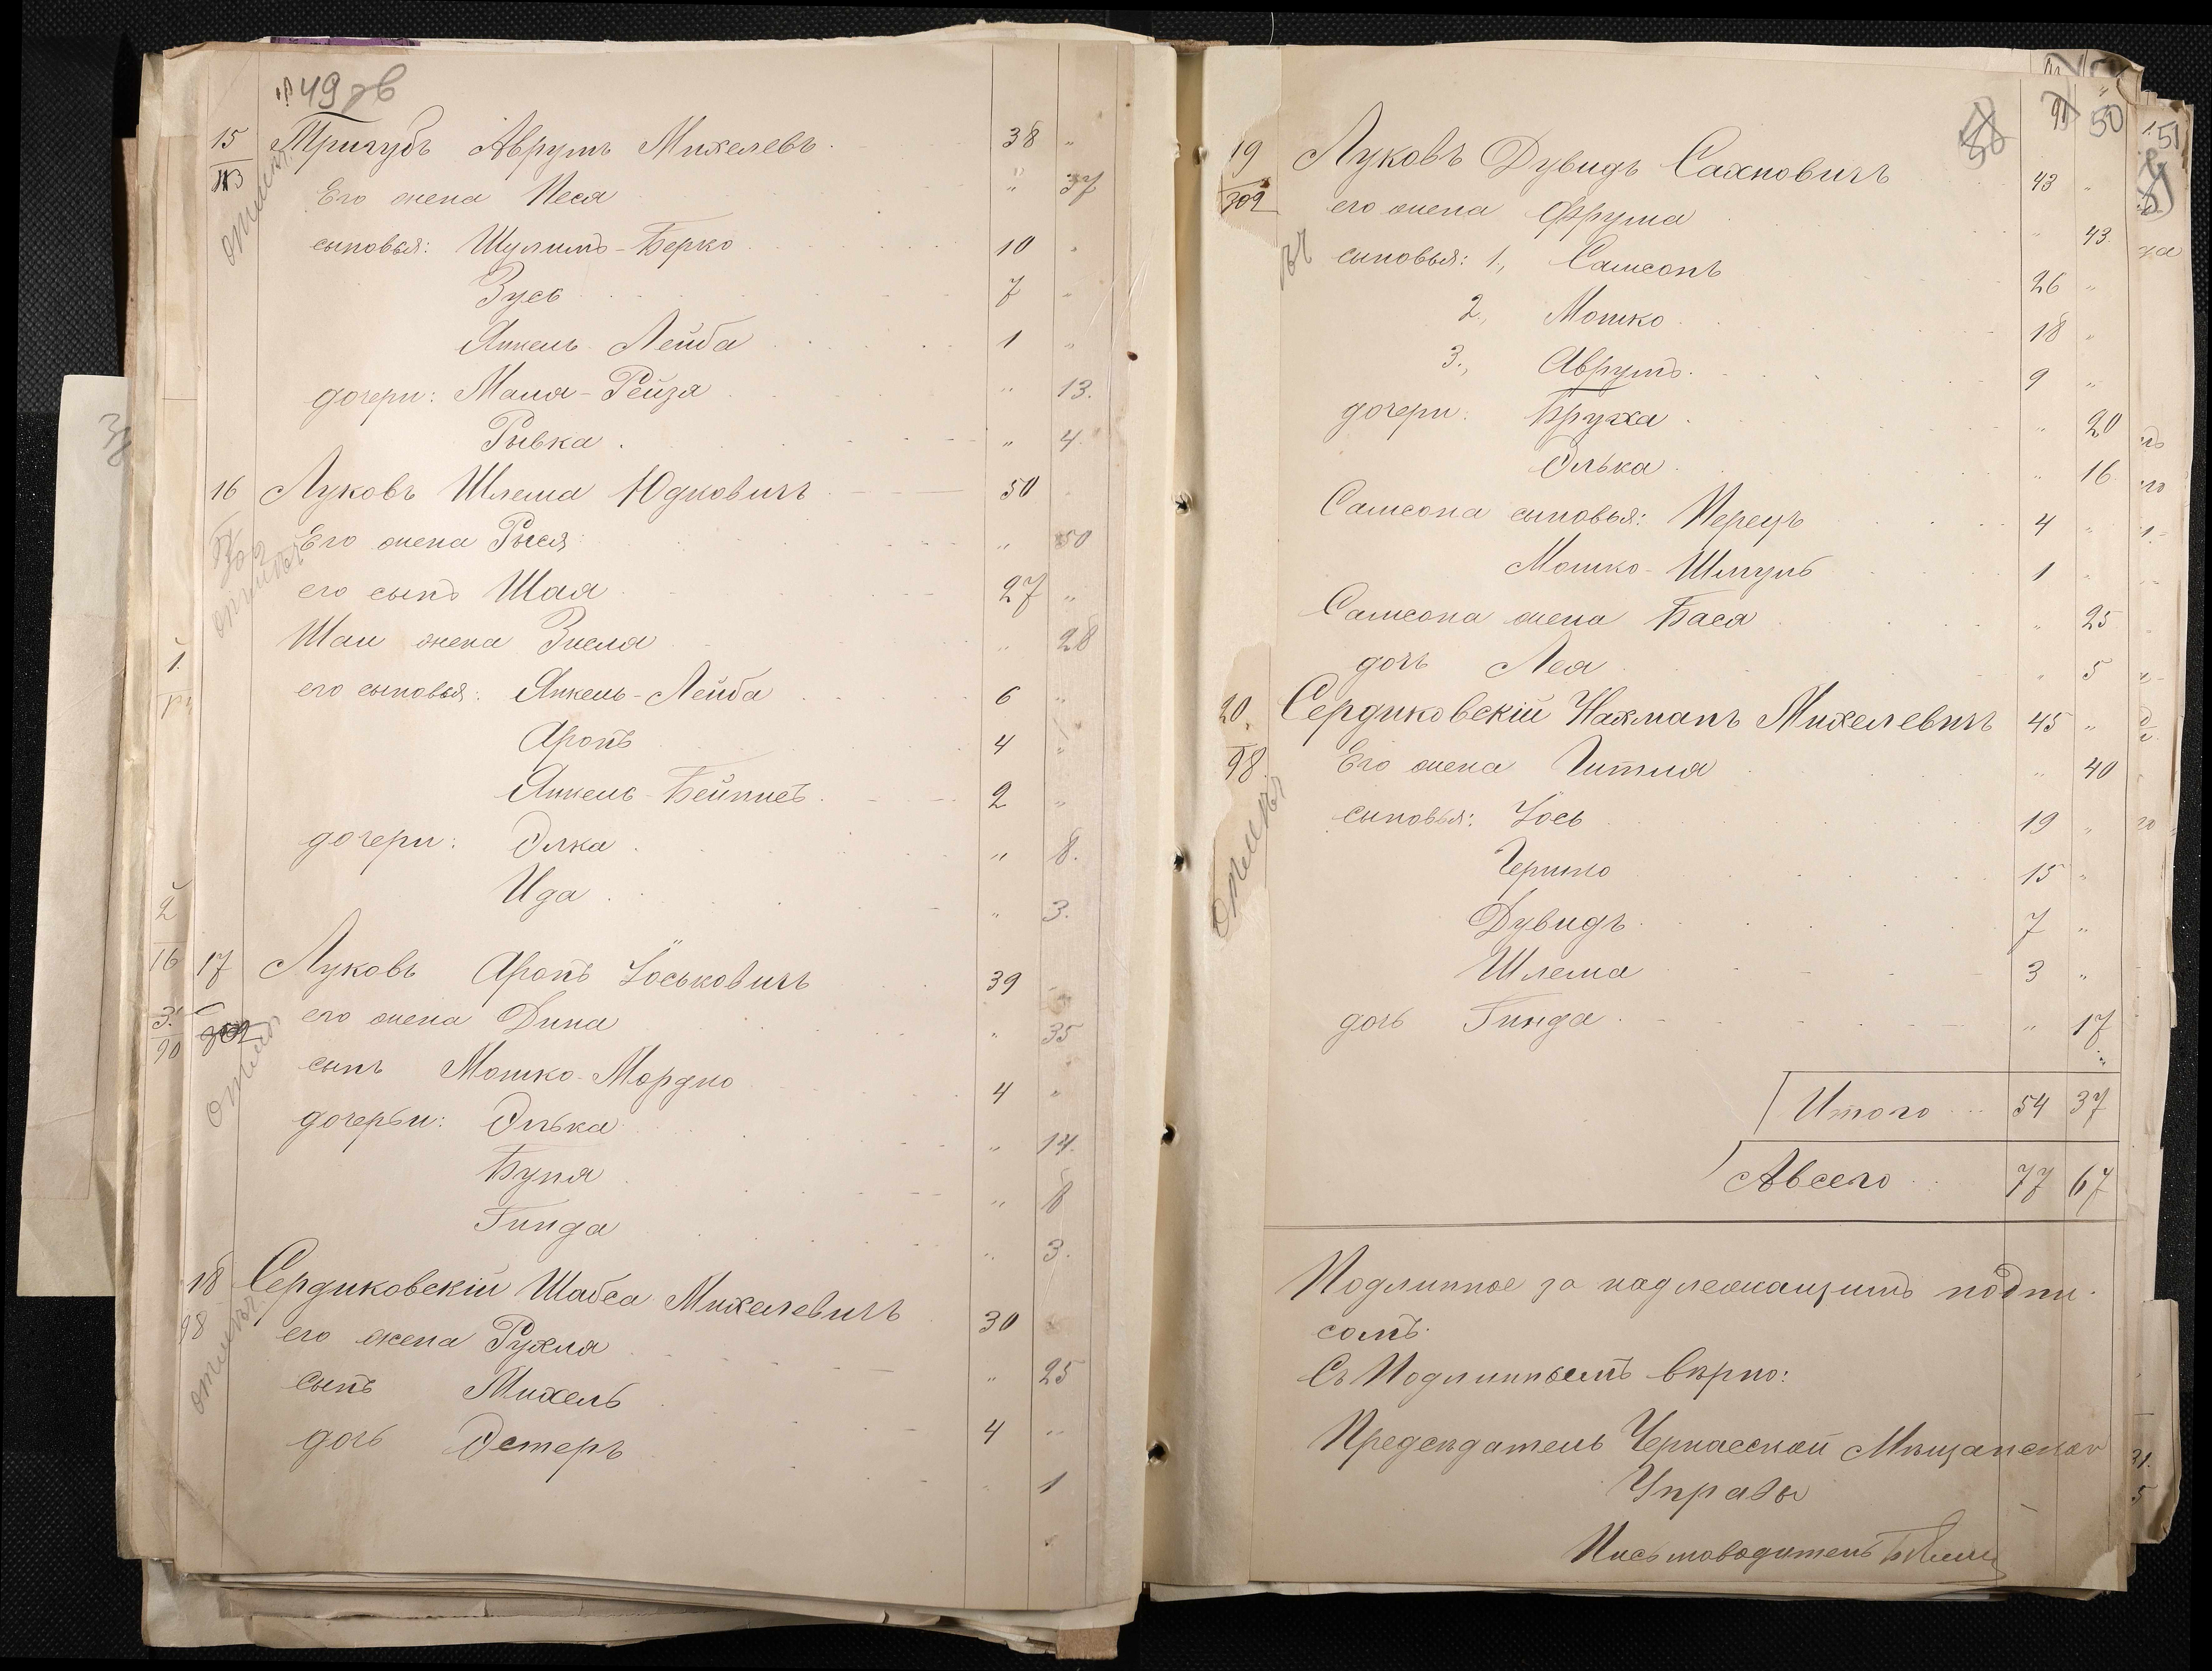 49 зв
15 Тригубъ Аврумъ Михелевъ 38 "
Его жена Песя " 37
сыновья: Шулимъ-Берко 10 "
Зусь 7 "
Янкель Лейба 1 "
дочери: Маля-Рейзя " 13.
Рывка " 4.
16 Луковъ Шлема Юдковичъ 50
Его жена Рыся " 50
его сынъ Шая 27 "
Шаи жена Зисля " 28
его сыновья: Янкель-Лейба 6 "
Аронъ 4 "
Янкель-Бейнисъ 2 "
дочери: Элка " 8.
Ида " 3.
17 Луковъ Аронъ Іоськовичъ 39
302 его жена Дина " 35
сынъ Мошко-Мордко 4 "
дочерьи: Элька " 14.
Буня " 8
Гинда " 3.
18 Сердиковскій Шабса Михелевичъ 30
98 его жена Рухля " 25
сынъ Михель 4 "
дочь Эстеръ 1
50
51
19 Луковъ Дувидъ Сахновичъ 43 "
302 его жена Фрума " 43
сыновья: 1., Самсонъ 26 "
2., Мошко 18 "
3., Аврумъ 9 "
дочери: Бруха " 20
Элька " 16
Самсона сыновья: Перецъ 4 "
Мошко-Шмуль 1 "
Самсона жена Бася " 25
дочь Лея " 5
20. Сердиковскій Нахманъ Михелевичъ 45 "
98. Его жена Гитля " 40
сыновья: Іось 19 "
Гершко 15 "
Дувидъ 7 "
Шлема 3 "
дочь Гинда " 17
Итого 54 37
А всего 77 67
Подлинное за надлежащимъ подпи-
сомъ.
Съ Подлиннымъ вѣрно:
Предсѣдатель Черкасской Мѣщанской
Управы
Письмоводитель